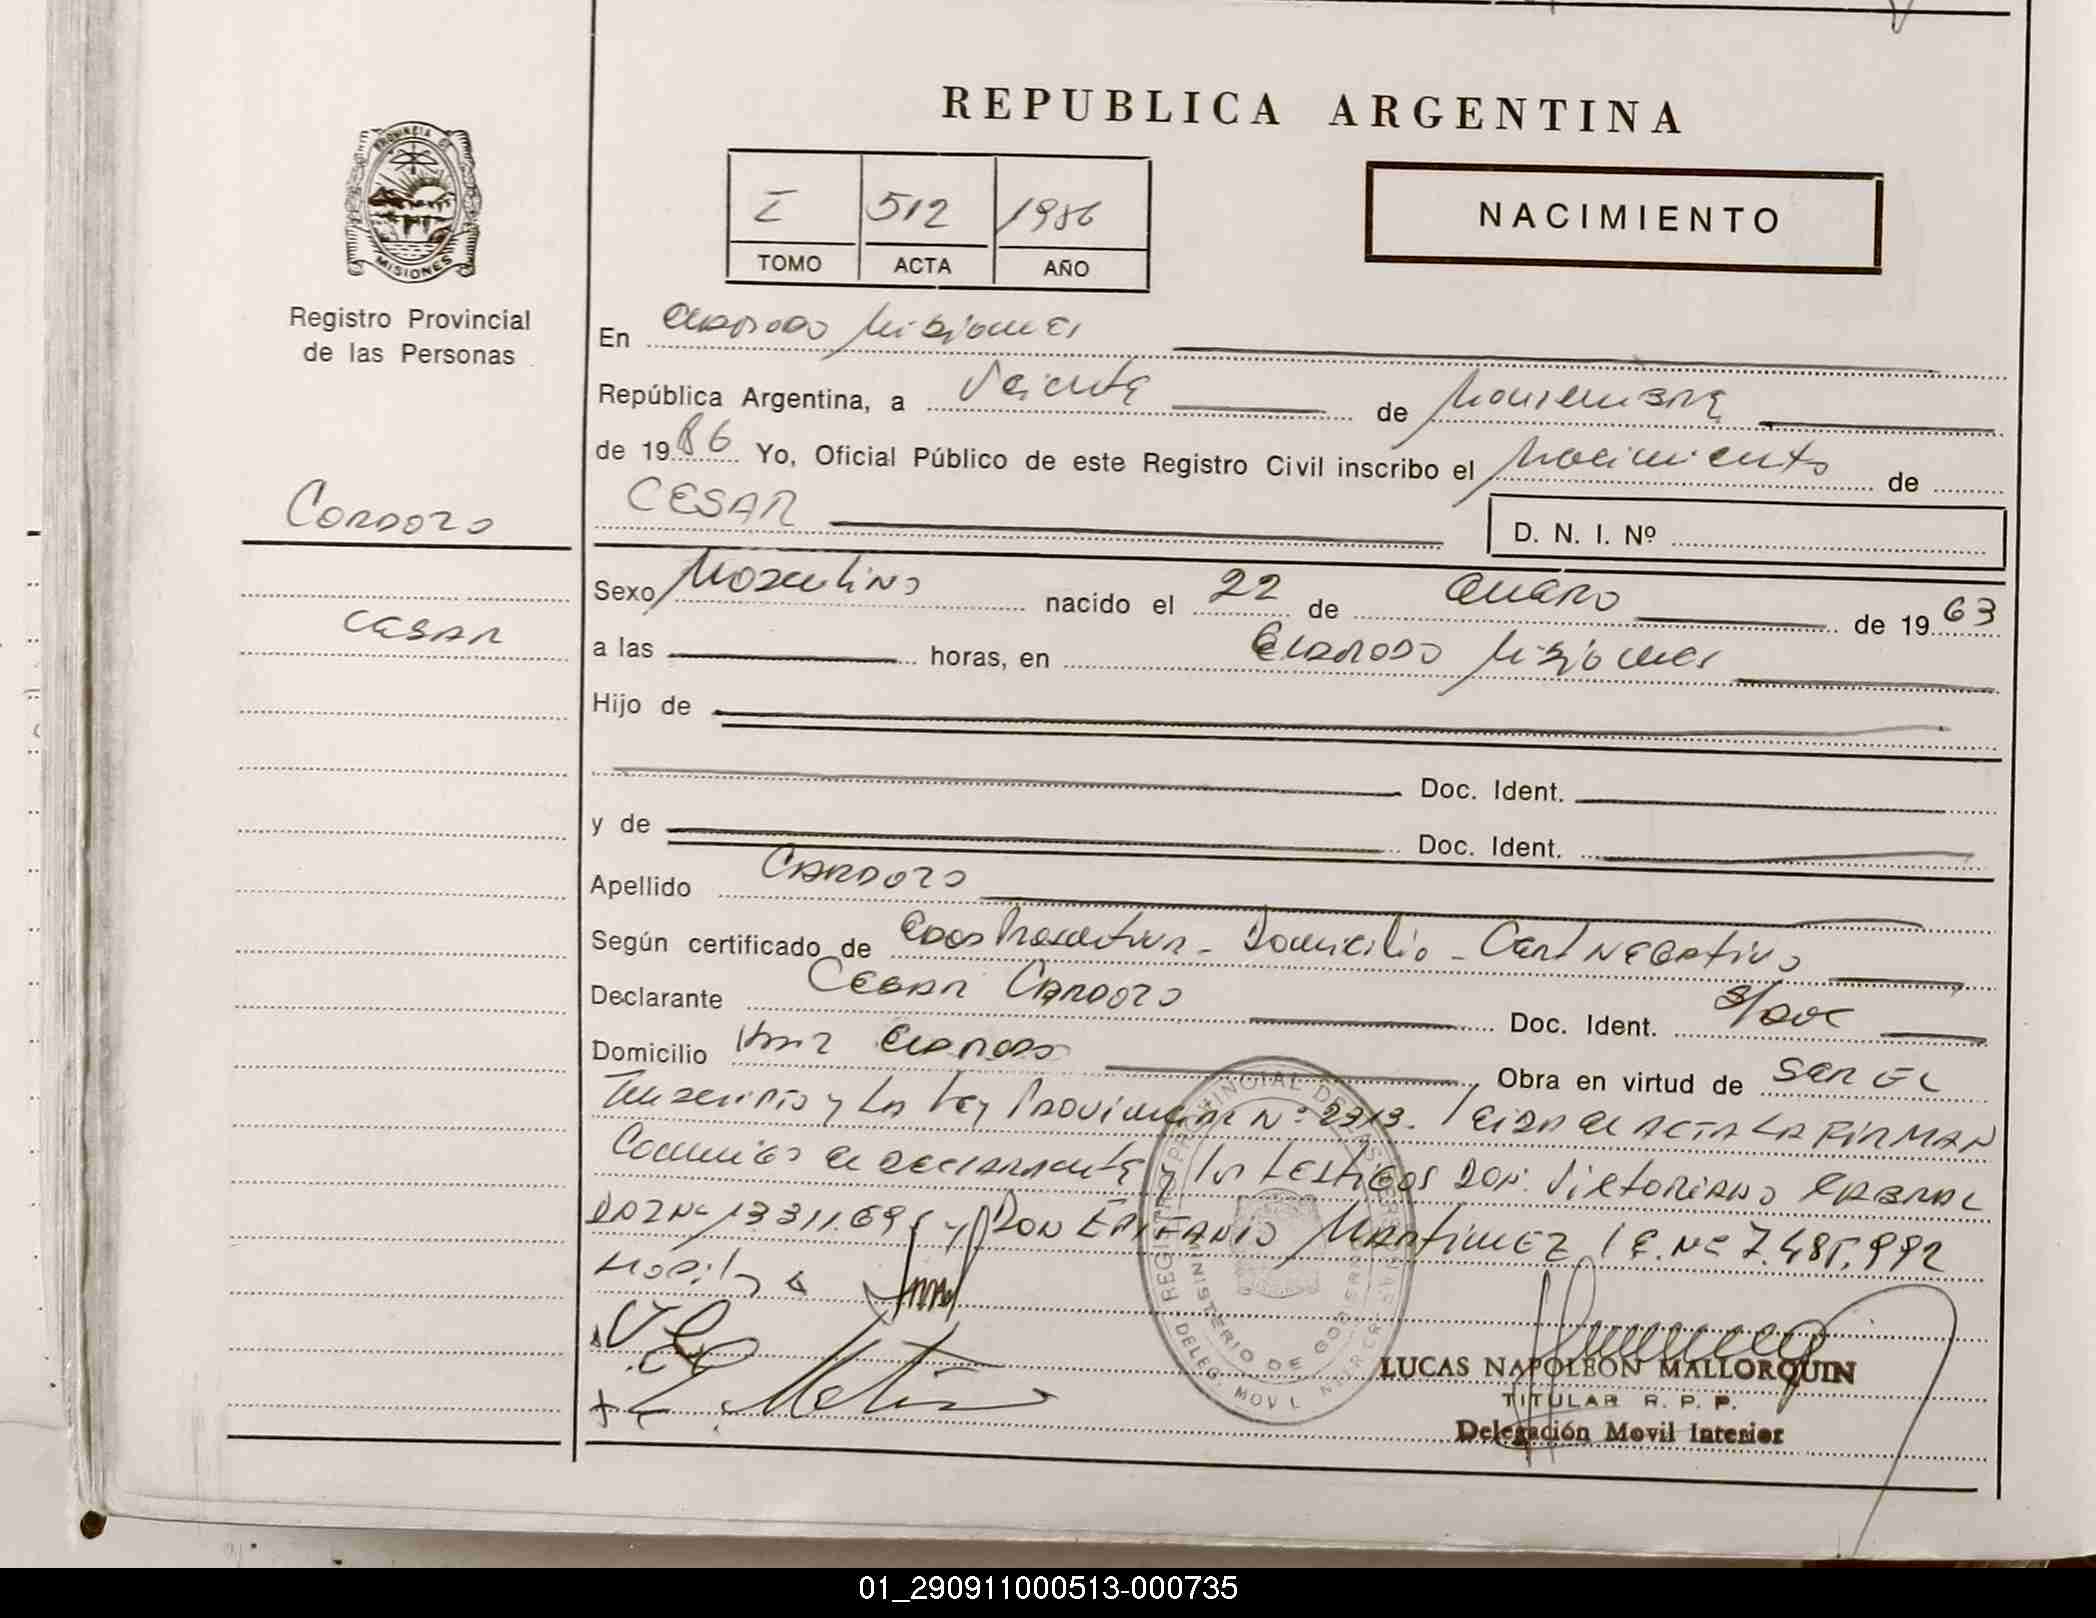 REPUBLICA ARGENTINA
PROVINCIA DE
MISIONES
Registro Provincial
de las Personas
I 512 1986
TOMO ACTA AÑO
NACIMIENTO
En Eldorado Misiones
República Argentina, a Veinte de Noviembre
de 1986 Yo, Oficial Público de este Registro Civil inscribo el Nacimiento de
CESAR
D. N. I. Nº
Cardozo
CESAR
Sexo Masculino nacido el 22 de Enero de 1963
a las horas, en Eldorado Misiones
Hijo de
Doc. Ident.
y de Doc. Ident.
Apellido CARDOZO
Según certificado de Domicilio - Cert NEGATIVO
Declarante CESAR CARDOZO Doc. Ident. S/DOC
Domicilio Eldorado Obra en virtud de SER EL
Inscripto y La Ley Provincial Nº 2313. Leida el ACTA LA FIRMAN
Conmigo el declarante y los testigos DON Victoriano CABRAL
y DON EPIFANIO MARTINEZ L E. Nº 7.485.992
REGISTRO PROVINCIAL DE LAS PERSONAS
MINISTERIO DE GOBIERNO
DELEG. MOVIL
LUCAS NAPOLEON MALLORQUIN
TITULAR R. P. P.
Delegación Movil Interior
01_290911000513-000735